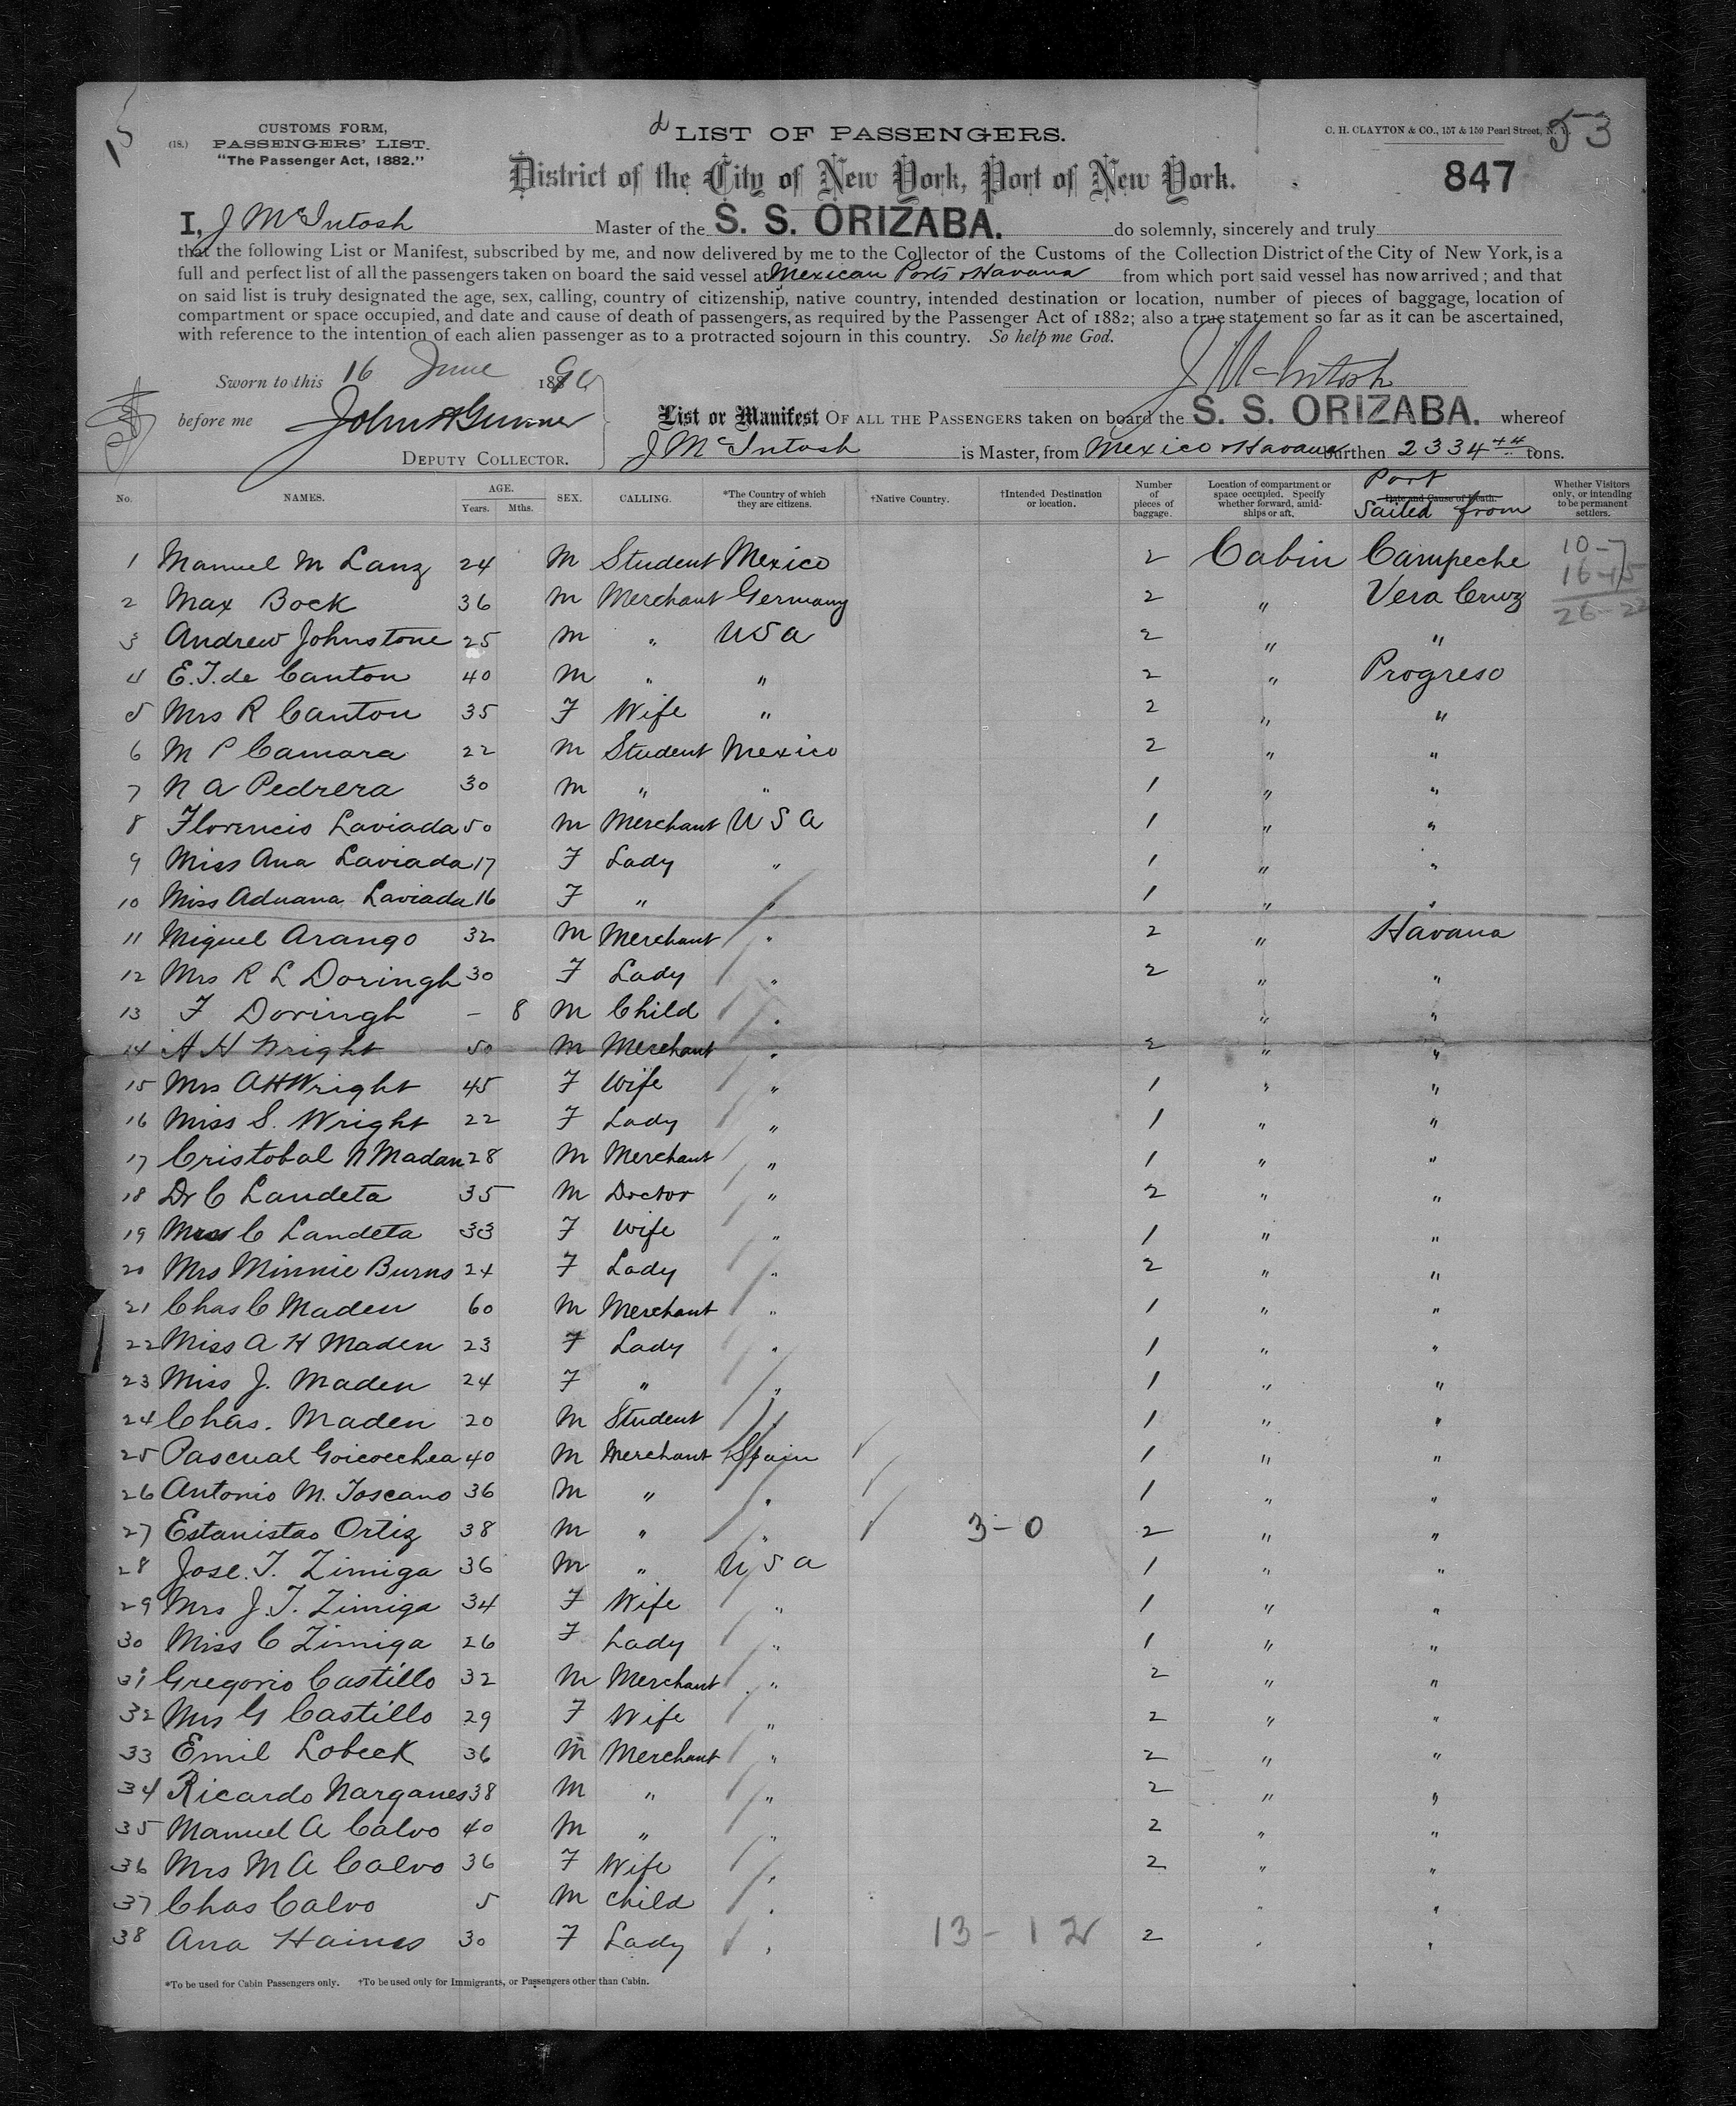 15
CUSTOMS FORM,
(18.) PASSENGERS' LIST.
"The Passenger Act, 1882."
LIST OF PASSENGERS.
C. H. CLAYTON & CO., 157 & 159 Pearl Street, N. Y.
53
District of the City of New York, Port of New York.
847
I, J McIntosh Master of the S. S. ORIZABA. do solemnly, sincerely and truly
that the following List or Manifest, subscribed by me, and now delivered by me to the Collector of the Customs of the Collection District of the City of New York, is a
full and perfect list of all the passengers taken on board the said vessel at Mexican Ports & Havana from which port said vessel has now arrived; and that
on said list is truly designated the age, sex, calling, country of citizenship, native country, intended destination or location, number of pieces of baggage, location of
compartment or space occupied, and date and cause of death of passengers, as required by the Passenger Act of 1882; also a true statement so far as it can be ascertained,
with reference to the intention of each alien passenger as to a protracted sojourn in this country. So help me God.
J McIntosh
Sworn to this 16 June 1890
before me
DEPUTY COLLECTOR.
List or Manifest OF ALL THE PASSENGERS taken on board the S. S. ORIZABA. whereof
J McIntosh is Master, from Mexico & Havana burthen 2334 44 tons.
No. NAMES. AGE. Years. Mths. SEX. CALLING. *The Country of which they are citizens. †Native Country. †Intended Destination or location. Number of pieces of baggage. Location of compartment or space occupied. Specify whether forward, amidships or aft. Date and Cause of Death. Port Sailed from Whether Visitors only, or intending to be permanent settlers.
1 Manuel M Lanz 24 M Student Mexico 2 Cabin Campeche 10-7
2 Max Bock 36 M Merchant Germany 2 " Vera Cruz 16-15
26-22
3 Andrew Johnstone 25 M " USA 2 " "
4 E.T. de Canton 40 M " " 2 " Progreso
5 Mrs R Canton 35 F Wife " 2 " "
6 M P Camara 22 M Student Mexico 2 " "
7 N A Pedrera 30 M " " 1 " "
8 Florencis Laviada 50 M Merchant USA 1 " "
9 Miss Ana Laviada 17 F Lady " 1 " "
10 Miss Aduana Laviada 16 F " " 1 " "
11 Miguel Arango 32 M Merchant " 2 " Havana
12 Mrs R L Doringh 30 F Lady " 2 " "
13 F Doringh - 8 M Child " " "
14 A H Wright 50 M Merchant " 2 " "
15 Mrs A H Wright 45 F Wife " 1 " "
16 Miss S. Wright 22 F Lady " 1 " "
17 Cristobal N Madan 28 M Merchant " 1 " "
18 Dr C Landeta 35 M Doctor " 2 " "
19 Mrs C Landeta 33 F Wife " 1 " "
20 Mrs Minnie Burns 24 F Lady " 2 " "
21 Chas C Maden 60 M Merchant " 1 " "
22 Miss A H Maden 23 F Lady " 1 " "
23 Miss J. Maden 24 F " " 1 " "
24 Chas. Maden 20 M Student " 1 " "
25 Pascual Goicoechea 40 M Merchant Spain 1 " "
26 Antonio M. Toscano 36 M " " 1 " "
27 Estanistao Ortiz 38 M " " 3-0 2 " "
28 Jose. T. Zimiga 36 M " USA 1 " "
29 Mrs J. T. Zimiga 34 F Wife " 1 " "
30 Miss C Zimiga 26 F Lady " 1 " "
31 Gregorio Castillo 32 M Merchant " 2 " "
32 Mrs G Castillo 29 F Wife " 2 " "
33 Emil Lobeck 36 M Merchant " 2 " "
34 Ricardo Narganes 38 M " " 2 " "
35 Manuel A Calvo 40 M " " 2 " "
36 Mrs M A Calvo 36 F Wife " 2 " "
37 Chas Calvo 5 M Child " " "
38 Ana Haines 30 F Lady " 13-12 2 " "
*To be used for Cabin Passengers only. †To be used only for Immigrants, or Passengers other than Cabin.